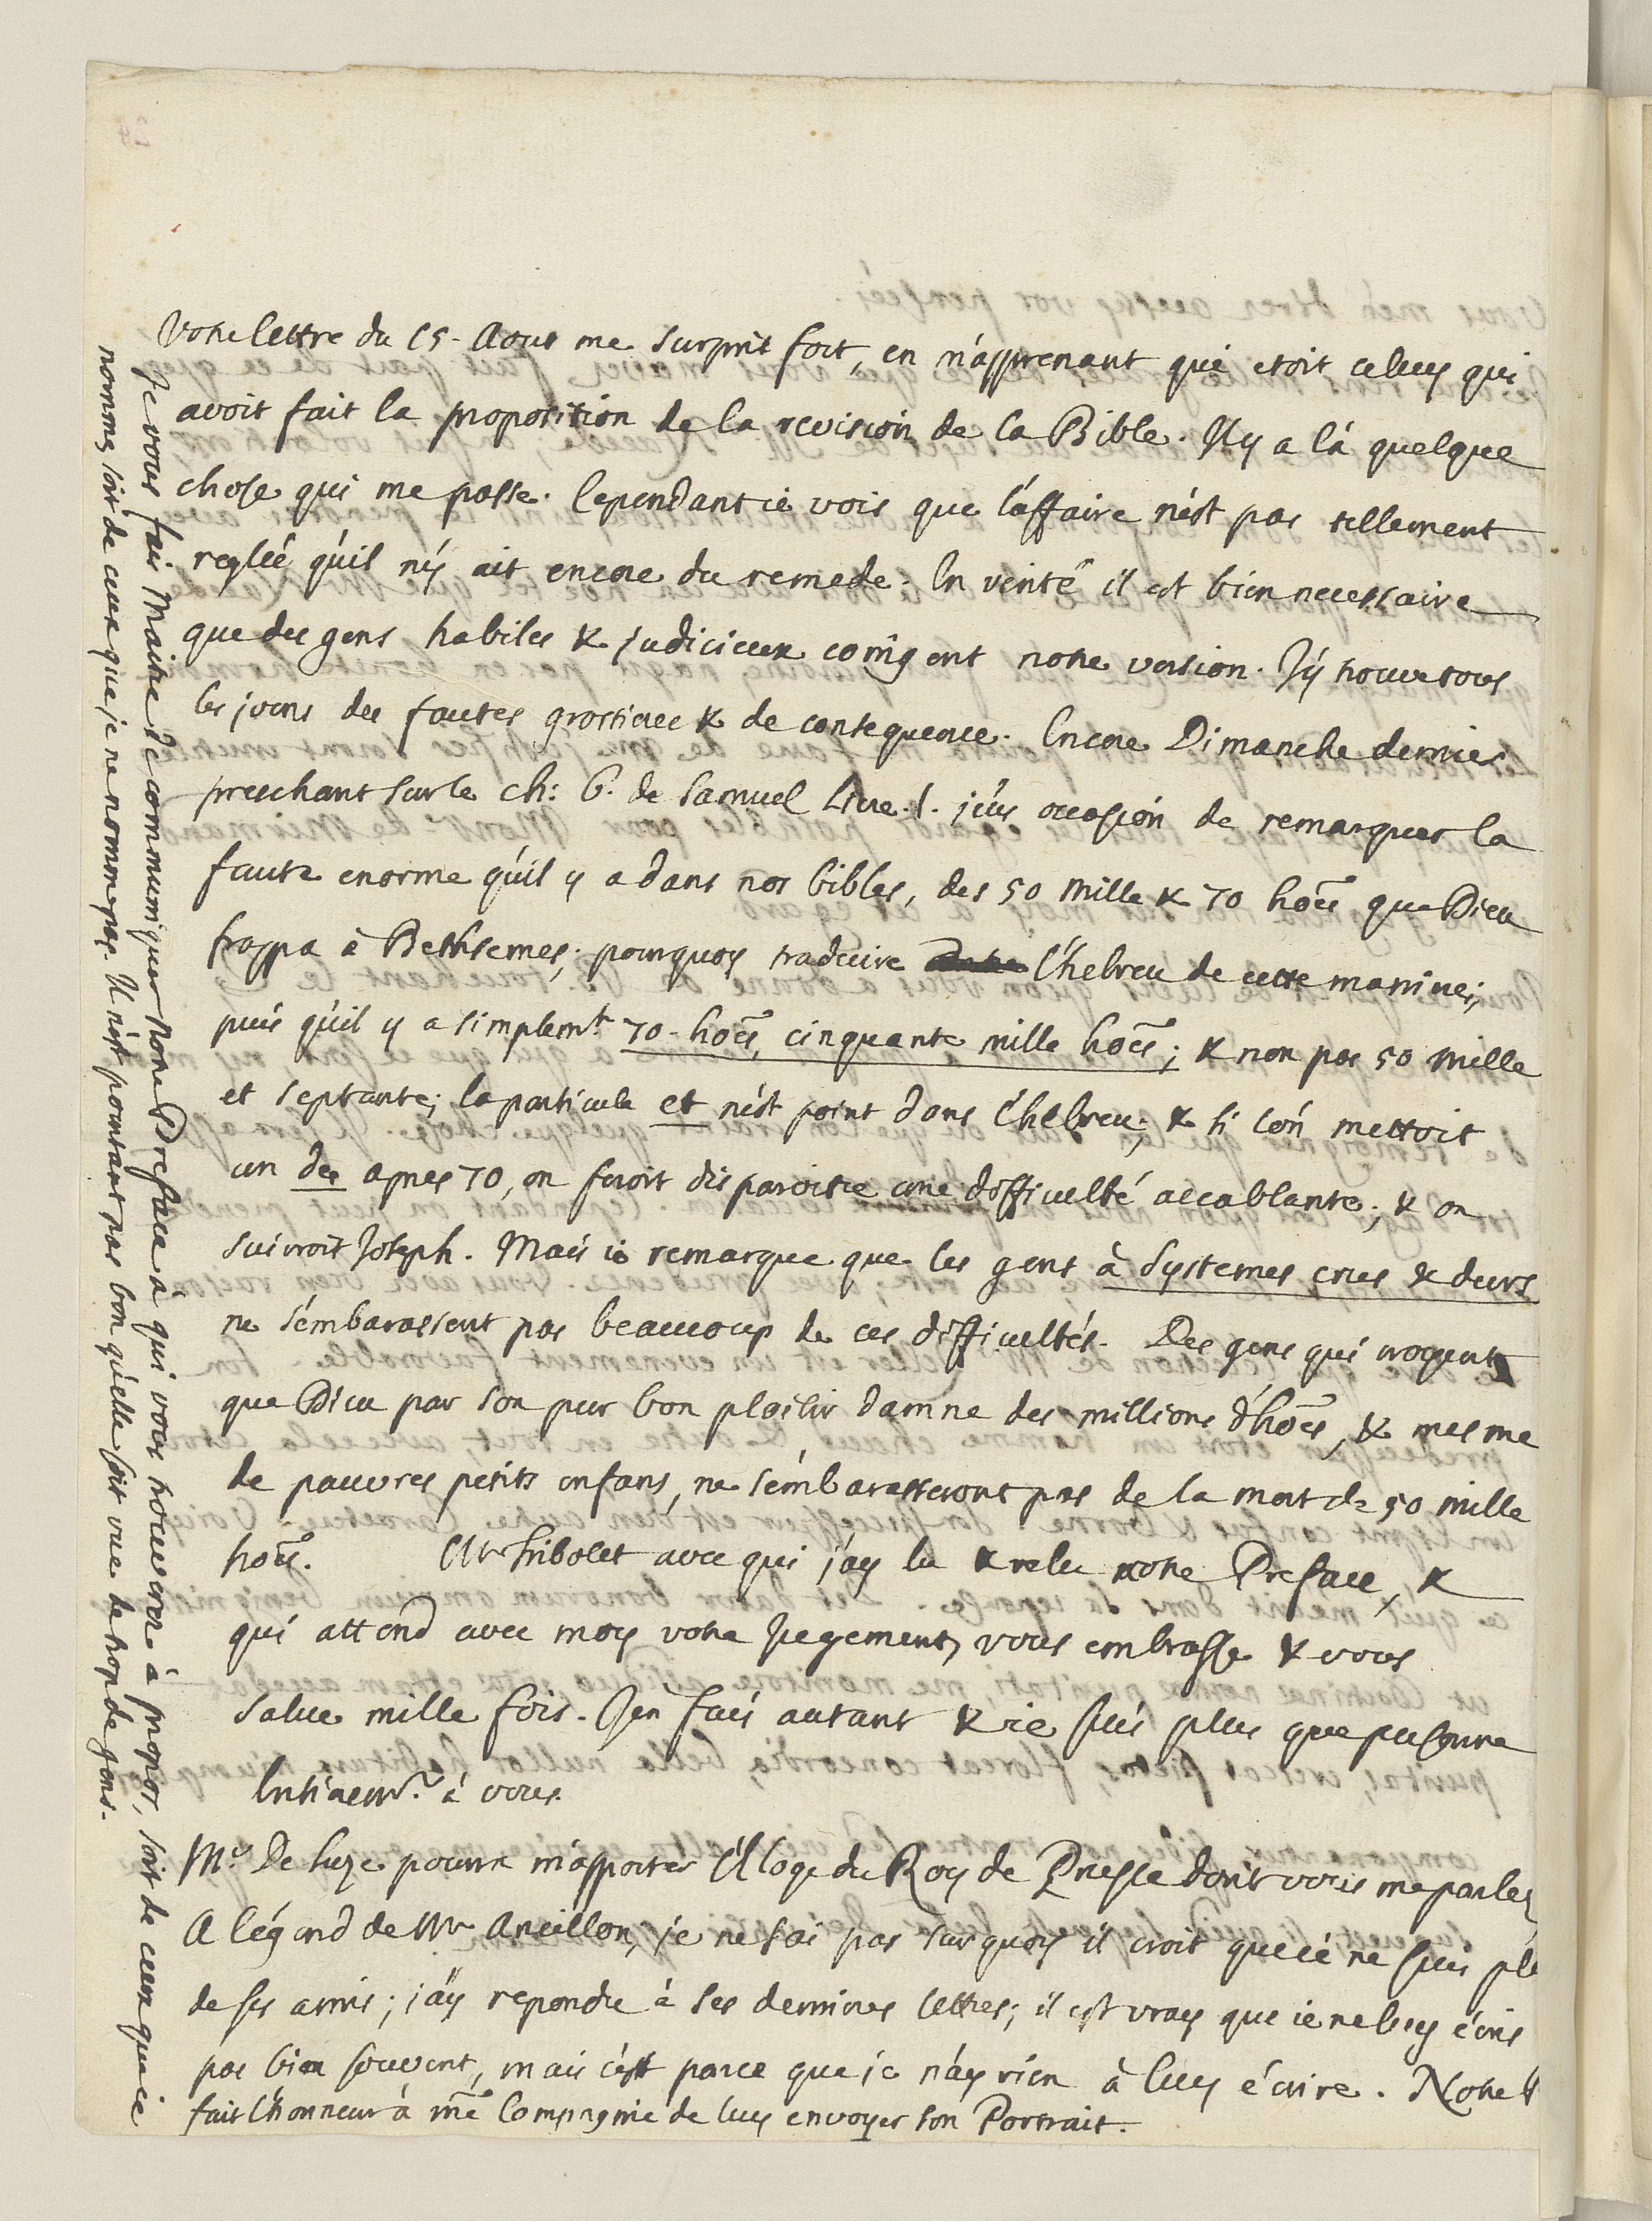 Votre lettre du 15. Aout me surprit fort, en m'apprenant qui etoit celuy qui
avoit fait la proposition de la revision de la Bible. Il y a là quelque
chose qui me passe. Cependant ie vois que l'affaire n'est pas tellement
reglée qu'il n'y ait encore du remede. En verité il est bien necessaire
que des gens habiles & judicieux corrigent notre version. J'y trouve tous
les jours des fautes grossieres & de consequence. Encore Dimanche dernier
preschant sur le ch: 6. de Samuel Livre. 1. j'eus occasion de remarquer la
faute enorme qu'il y a dans nos bibles, des 50 mille & 70 hoẽs que Dieu
frappa à Bethsemes; pourquoy traduire l'hebreu de cette maniere;
puis qu'il y a simplemt. 70. hoẽs, cinquante mille hoẽs; & non pas 50 mille
et septante; la particule et n'est point dans l'hebreu; & si l'on mettoit
un de apres 70, on feroit disparoitre une difficulté accablante; & on
suivroit Joseph. Mais ie remarque que les gens à Systemes crus & durs
ne s'embarassent pas beaucoup de ces difficultés. Des gens qui croyent
que Dieu par son pur bon plaisir damne des millions d'hoẽs, & mesme
de pauvres petits enfans, ne s'embarasseront pas de la mort de 50 mille
hoẽs. Mr Tribolet avec qui j'ay lu & relu notre Preface, &
qui attend avec moy votre Jugement, vous embrasse & vous
salue mille fois. J'en fais autant & ie suis plus que personne
Entieremt. à vous.
Mr. De Luze pourra m'apporter l'Eloge du Roy de Prusse dont vous me parlez
A l'égard de Mr Ancillon, je ne sai pas sur quoy il croit que ie ne suis pl
de ses amis; j'ay repondu à ses dernieres lettres; il est vray que ie ne luy écris
pas bien souvent, mais c'est parce que je n'ay rien à luy écrire. Notre
fait l'honneur à mẽ Compagnie de luy envoyer son Portrait.
Je vous fais Maitre de communiquer notre Preface à qui vous trouverez à propos, soit de ceux que ie
nomme, soit de ceux que je ne nomme pas. Il n'est pourtant pas bon qu'elle soit vue de trop de gens.